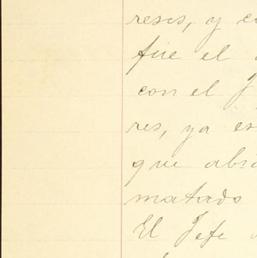 reses, y co
fué el
con el J
res, ya es
que abso
matado
El Jefe